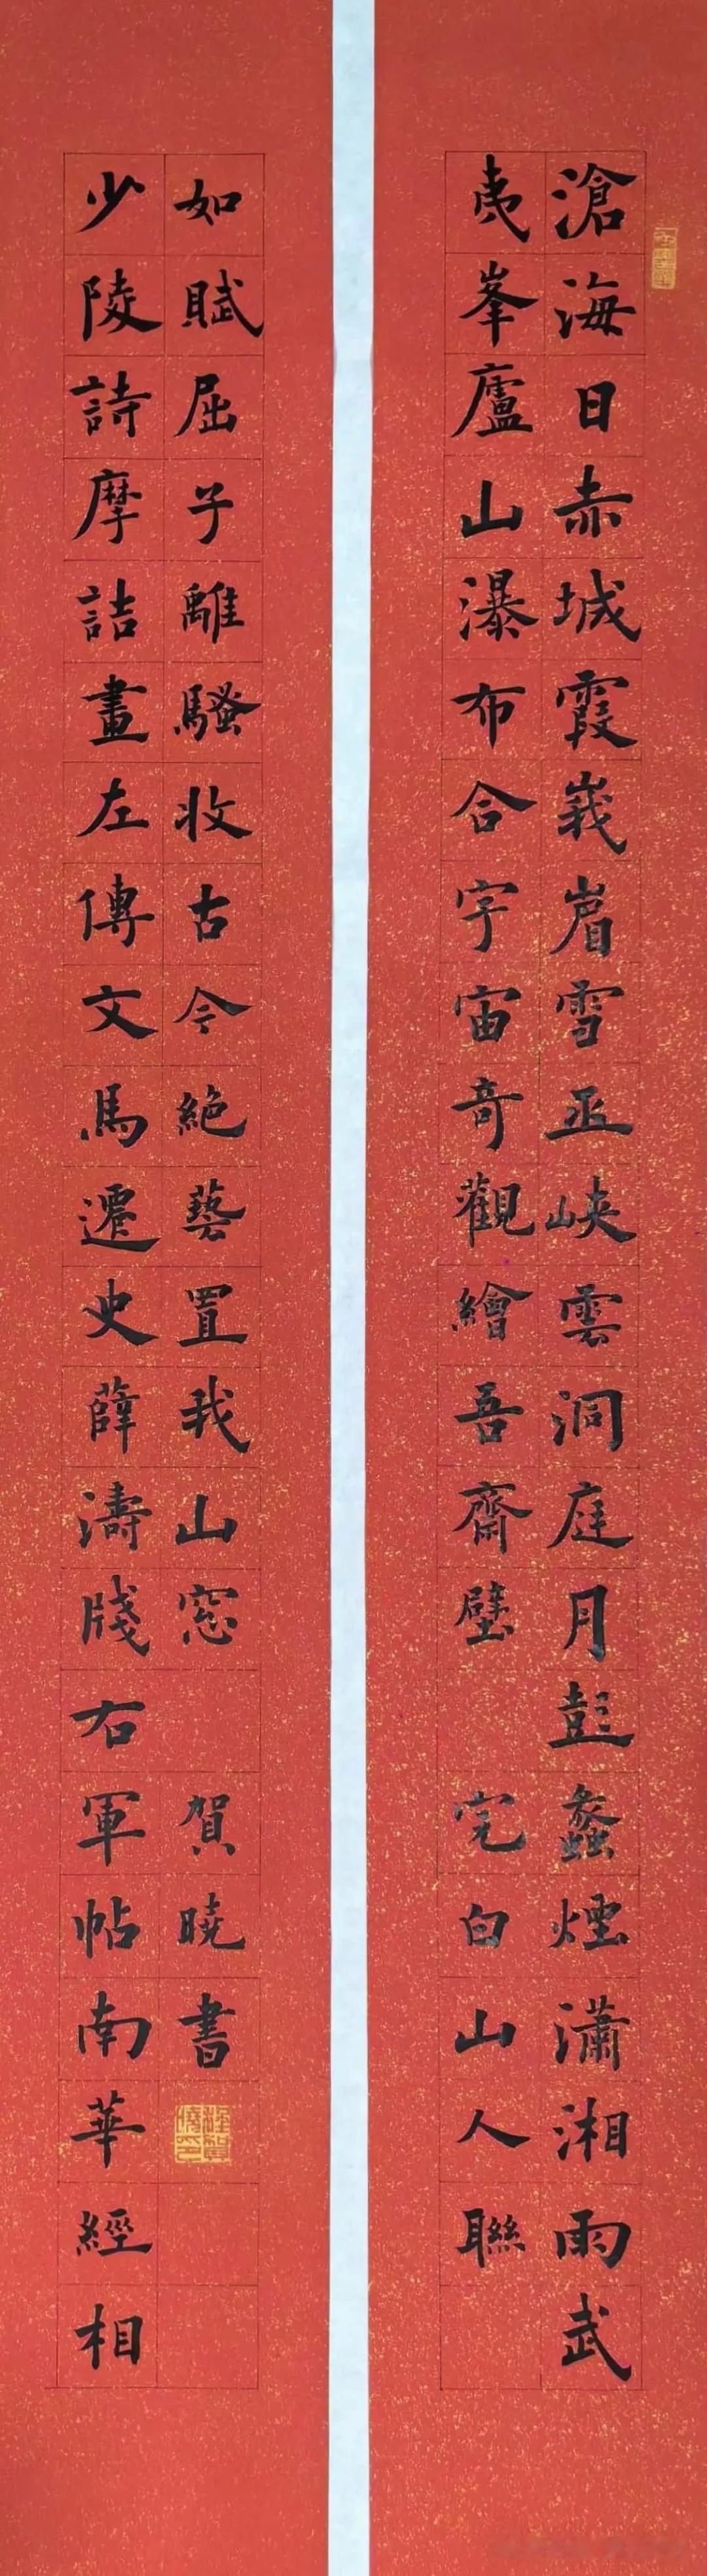 滄海日赤城霞峩嵋雪巫峽雲洞庭月彭蠡煙瀟湘雨武
夷峯廬山瀑布合宇宙奇觀繪吾齋壁 完白山人聯
少陵詩摩詰畫左傳文馬遷史薛濤牋右軍帖南華經相
如賦屈子離騷收古今絕藝置我山窓 賀曉書